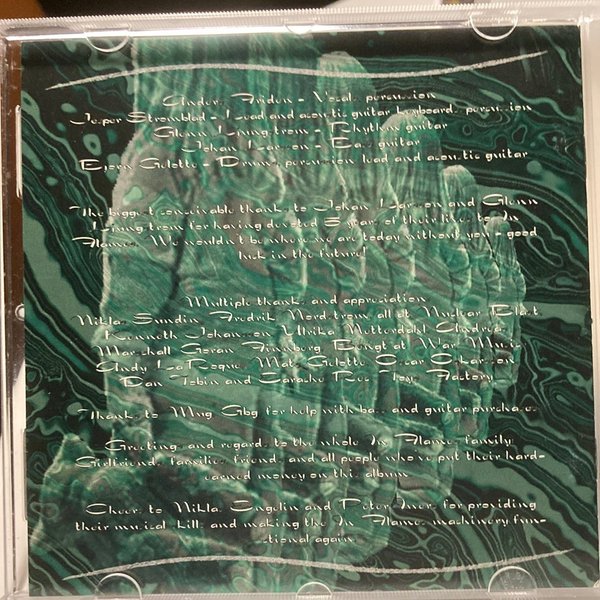 Anders Friden - Vocals, percussion
Jesper Stromblad - Lead and acoustic guitar, keyboards, percussion
Glenn Ljungstrom - Rhythm guitar
Johan Larsson - Bass guitar
Bjorn Gelotte - Drums, percussion, lead and acoustic guitar
The biggest conceivable thanks to Johan Larsson and Glenn
Ljungstrom for having devoted 5 years of their lives to In
Flames. We wouldn't be where we are today without you - good
luck in the future!
Multiple thanks and appreciation
Niklas Sundin Fredrik Nordstrom all at Nuclear Blast
Kenneth Johansson Ulrika Netterdahl Andrea
Marshall Goran Finnberg Bengt at War Music
Andy LaRoque Mats Gelotte Oscar
Dan Tobin and Toy's Factory
Thanks to Mng Gbg for help with bass and guitar purchases
Greetings and regards to the whole In Flames family:
Girlfriends, families, friends, and all people who've put their hard-
earned money on this album
Cheers to Niklas Engelin and Peter Iwers for providing
their musical skills and making the In Flames machinery func-
tional again